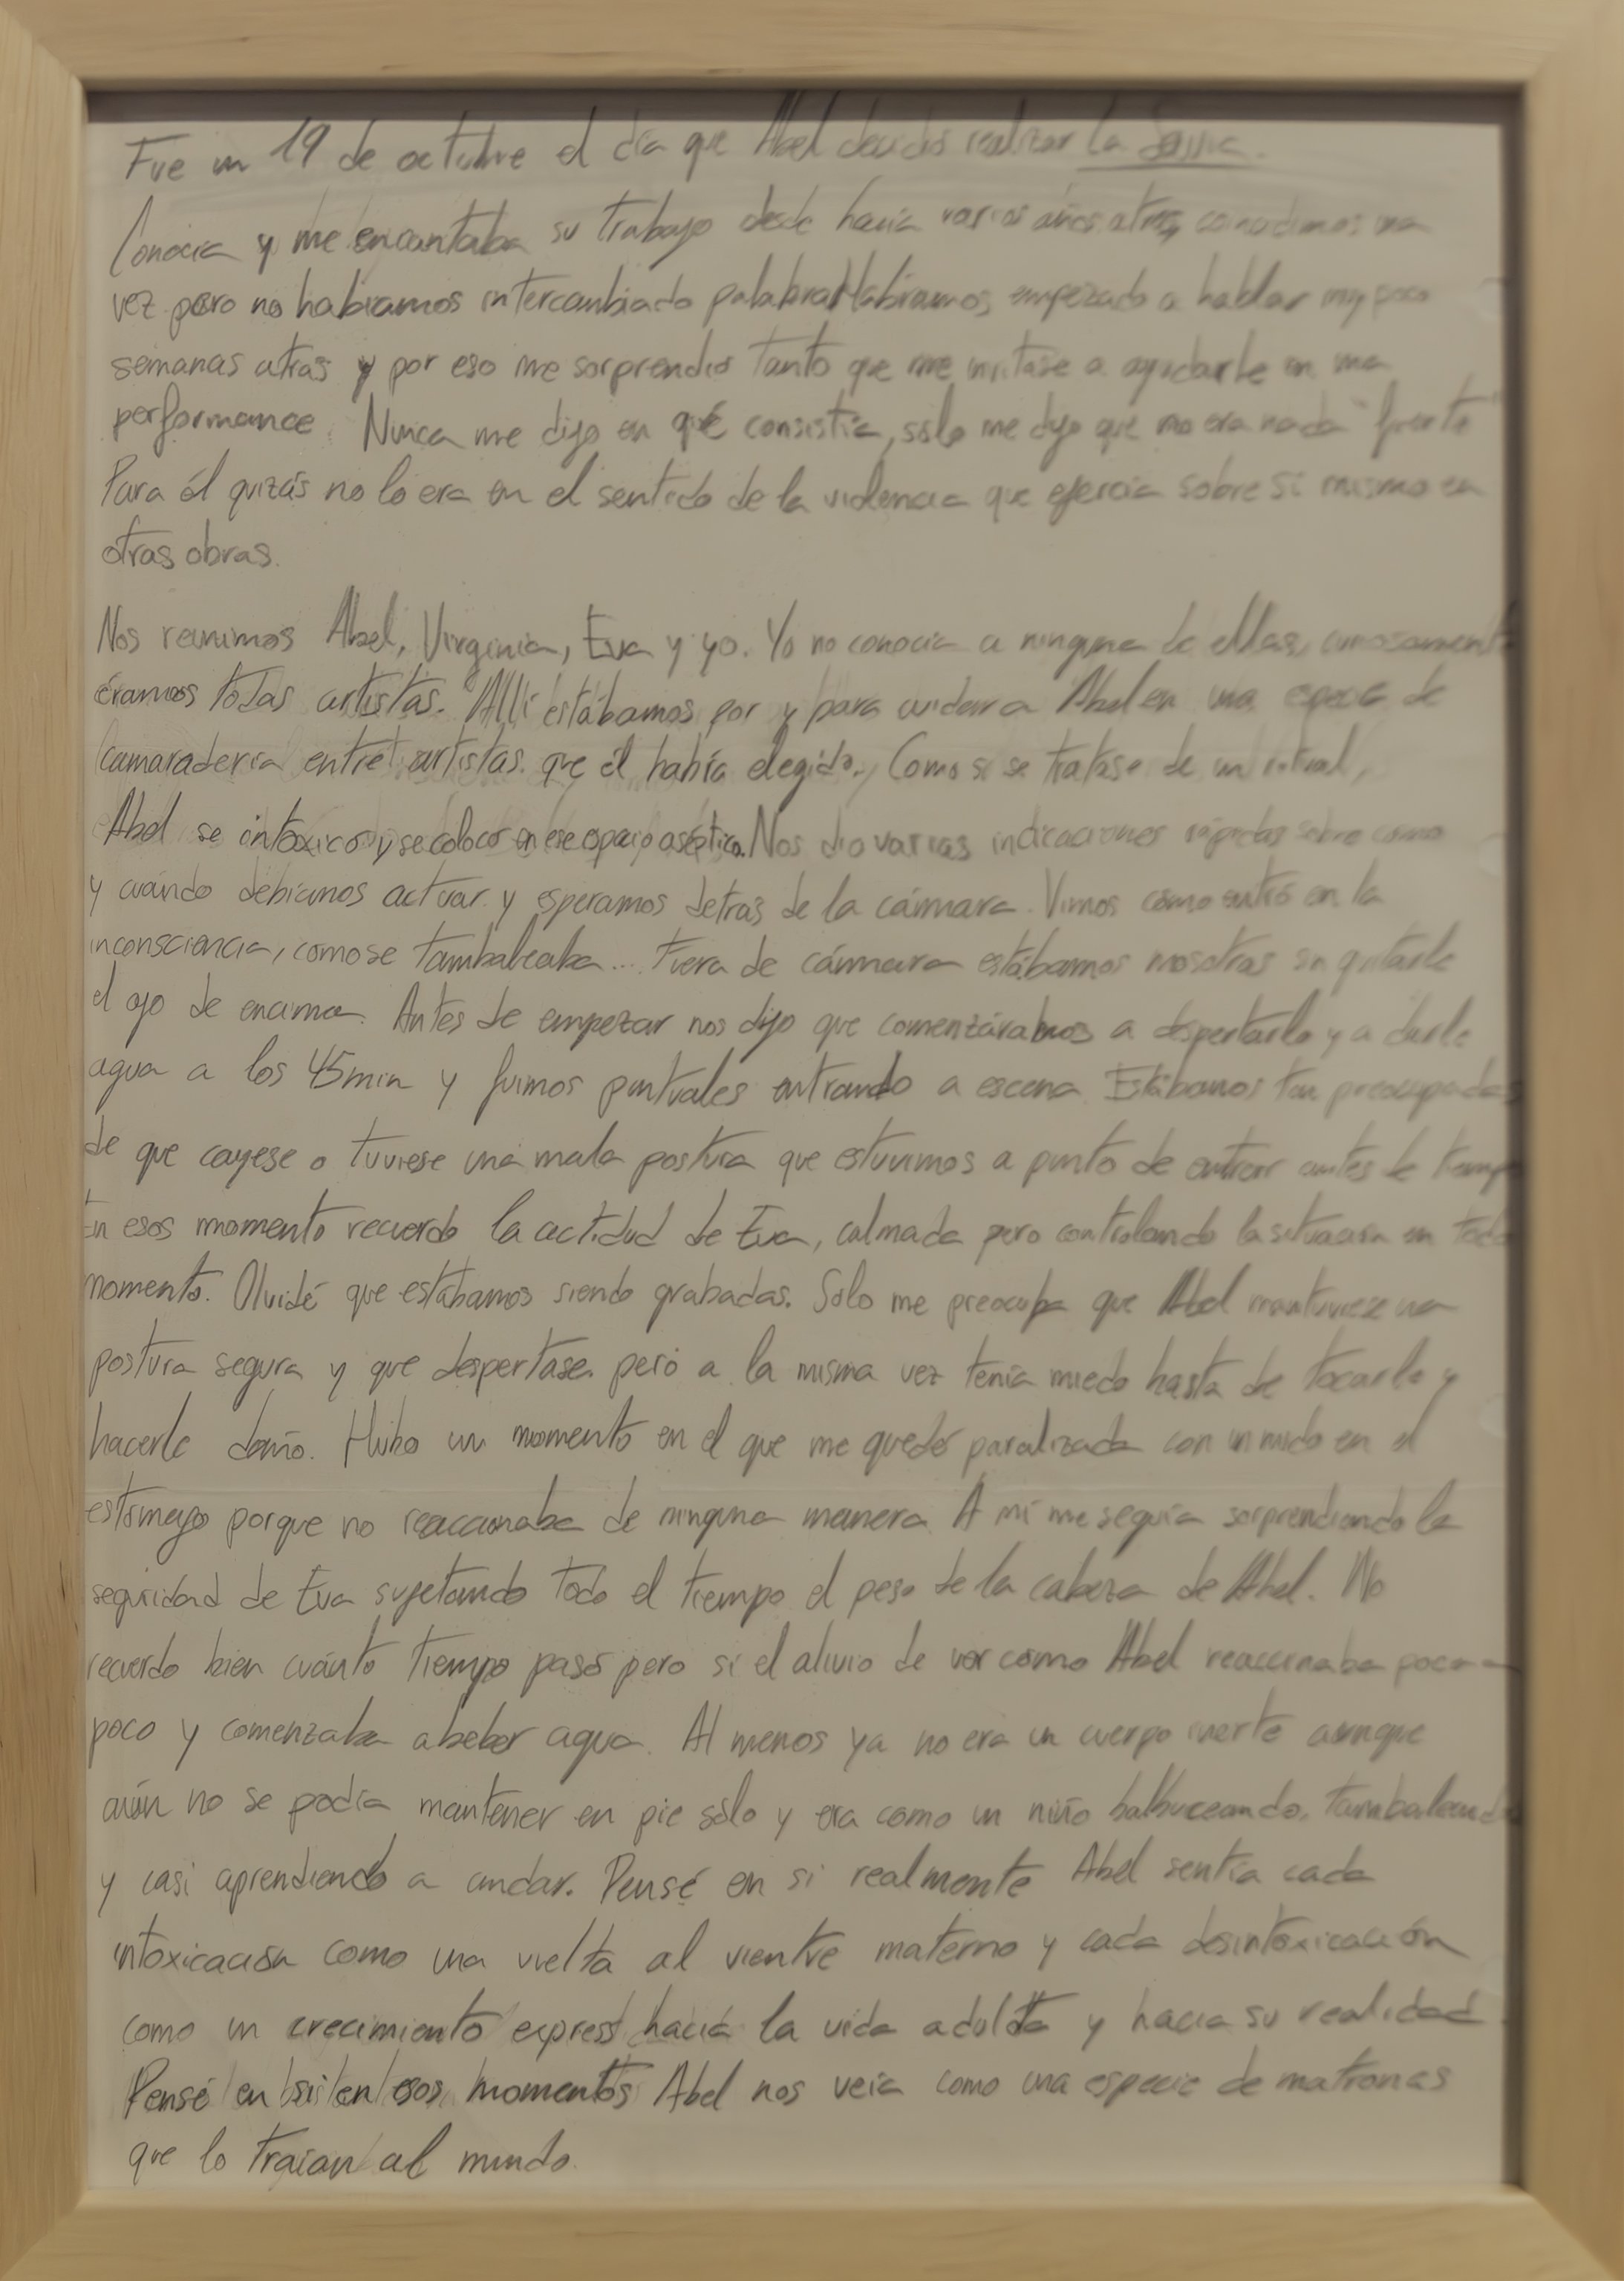 Fue un 19 de octubre el día que Abel decidió realizar La
Conocía y me encantaba su trabajo desde hacía varios años atrás, coincidimos una
vez pero no habíamos intercambiado palabra. Habíamos empezado a hablar muy poco
semanas atras y por eso me sorprendió tanto que me invitase a ayudarle en una
performance. Nunca me dijo en qué consistía, sólo me dijo que no era nada "fuerte"
Para él quizás no lo era en el sentido de la violencia que ejercía sobre sí mismo en
otras obras.
Nos reunimos Abel, Virginia, Eva y yo. Yo no conocía a ninguna de ellas, curiosamente
éramos todas artistas. Allí estábamos por y para cuidar a Abel en una especie de
camaradería entre artistas que él había elegido. Como si se tratase de un ritual,
Abel se intoxicó y se colocó en ese espacio aséptico. Nos dio varias indicaciones rápidas sobre cómo
y cuándo debíamos actuar y esperamos detrás de la cámara. Vimos cómo entró en la
inconsciencia, como se tambaleaba... Fuera de cámara estábamos nosotras sin quitarle
el ojo de encima. Antes de empezar nos dijo que comenzáramos a despertarlo y a darle
agua a los 45min y fuimos puntuales entrando a escena. Estábamos tan preocupadas
de que cayese o tuviese una mala postura que estuvimos a punto de entrar antes de tiempo
En esos momento recuerdo la actidud de Eva, calmada pero controlando la situación en todo
momento. Olvidé que estábamos siendo grabadas. Sólo me preocupa que Abel mantuviese una
postura segura y que despertase pero a la misma vez tenía miedo hasta de tocarlo y
hacerle daño. Hubo un momento en el que me quedé paralizada con un nudo en el
estómago porque no reaccionaba de ninguna manera. A mí me seguía sorprendiendo la
seguridad de Eva sujetando todo el tiempo el peso de la cabeza de Abel. No
recuerdo bien cuánto tiempo pasó pero sí el alivio de ver como Abel reaccionaba poco a
poco y comenzaba a beber agua. Al menos ya no era un cuerpo inerte aunque
aún no se podía mantener en pie sólo y era como un niño balbuceando, tambaleando
y casi aprendiendo a andar. Pensé en si realmente Abel sentía cada
intoxicación como una vuelta al vientre materno y cada desintoxicación
como un crecimiento express hacia la vida adulta y hacia su realidad.
Pensé en si en esos momentos Abel nos veía como una especie de matronas
que lo traían al mundo.